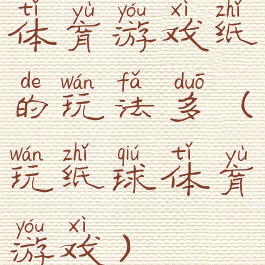 tǐ yù yóu xì zhǐ
体育游戏纸
de wán fǎ duō
的玩法多（
wán zhǐ qiú tǐ yù
玩纸球体育
yóu xì
游戏）